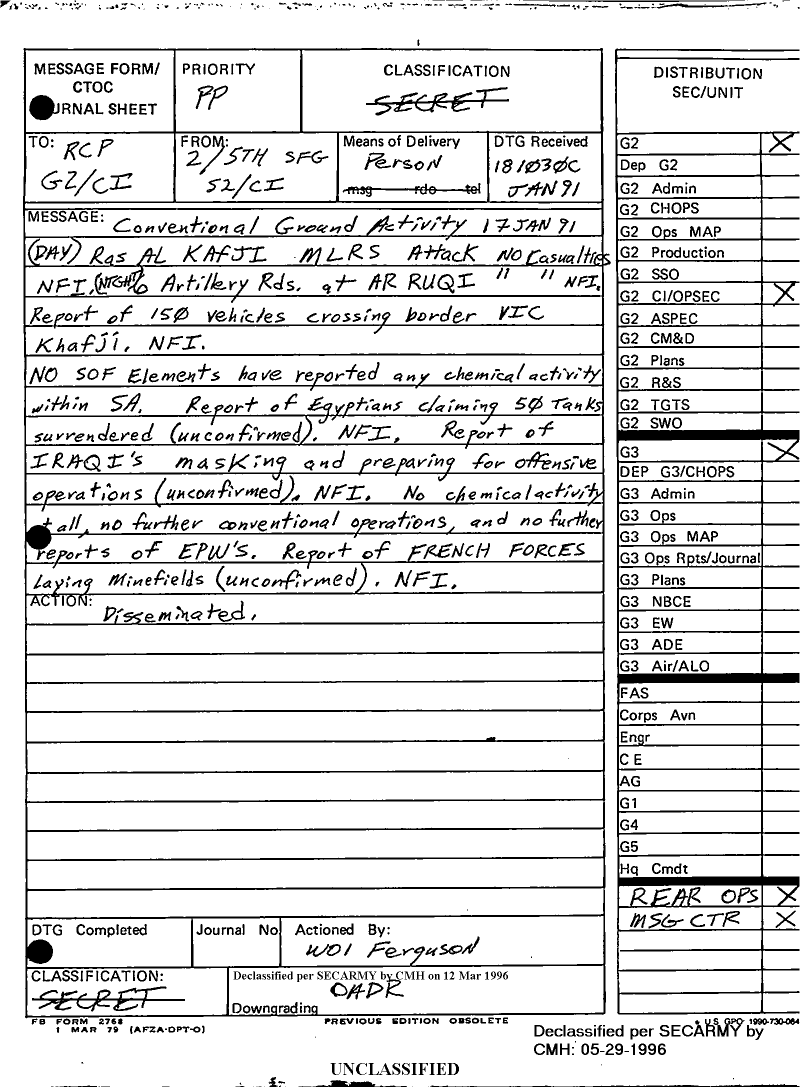 MESSAGE FORM/
CTOC
URNAL SHEET
PRIORITY
PP
CLASSIFICATION
SECRET
TO: RCP
G2/CI
FROM: 2/5TH SFG
S2/CI
Means of Delivery
Person
msg rdo tel
DTG Received
181030C
JAN 91
MESSAGE: Conventional Ground Activity 17 JAN 91
(DAY) Ras AL KAfJI MLRS Attack NO Casualties
NFI. (NIGHT) 6 Artillery Rds. at AR RUQI " " NFI.
Report of 150 vehicles crossing border VIC
Khafji. NFI.
NO SOF Elements have reported any chemical activity
within SA. Report of Egyptians claiming 50 Tanks
surrendered (unconfirmed). NFI. Report of
IRAQI's masking and preparing for offensive
operations (unconfirmed). NFI. No chemical activity
at all, no further conventional operations, and no further
reports of EPW'S. Report of FRENCH FORCES
Laying Minefields (unconfirmed). NFI.
ACTION: Disseminated.
DTG Completed
Journal No
Actioned By:
WO1 Ferguson
CLASSIFICATION:
SECRET
Declassified per SECARMY by CMH on 12 Mar 1996
OADR
Downgrading
FB FORM 2768
1 MAR 79 (AFZA-DPT-O)
PREVIOUS EDITION OBSOLETE
DISTRIBUTION
SEC/UNIT
G2 X
Dep G2
G2 Admin
G2 CHOPS
G2 Ops MAP
G2 Production
G2 SSO
G2 CI/OPSEC X
G2 ASPEC
G2 CM&D
G2 Plans
G2 R&S
G2 TGTS
G2 SWO
G3 X
DEP G3/CHOPS
G3 Admin
G3 Ops
G3 Ops MAP
G3 Ops Rpts/Journal
G3 Plans
G3 NBCE
G3 EW
G3 ADE
G3 Air/ALO
FAS
Corps Avn
Engr
C E
AG
G1
G4
G5
Hq Cmdt
REAR OPS X
MSG CTR X
U.S. GPO: 1990-730-064
Declassified per SECARMY by
CMH: 05-29-1996
UNCLASSIFIED